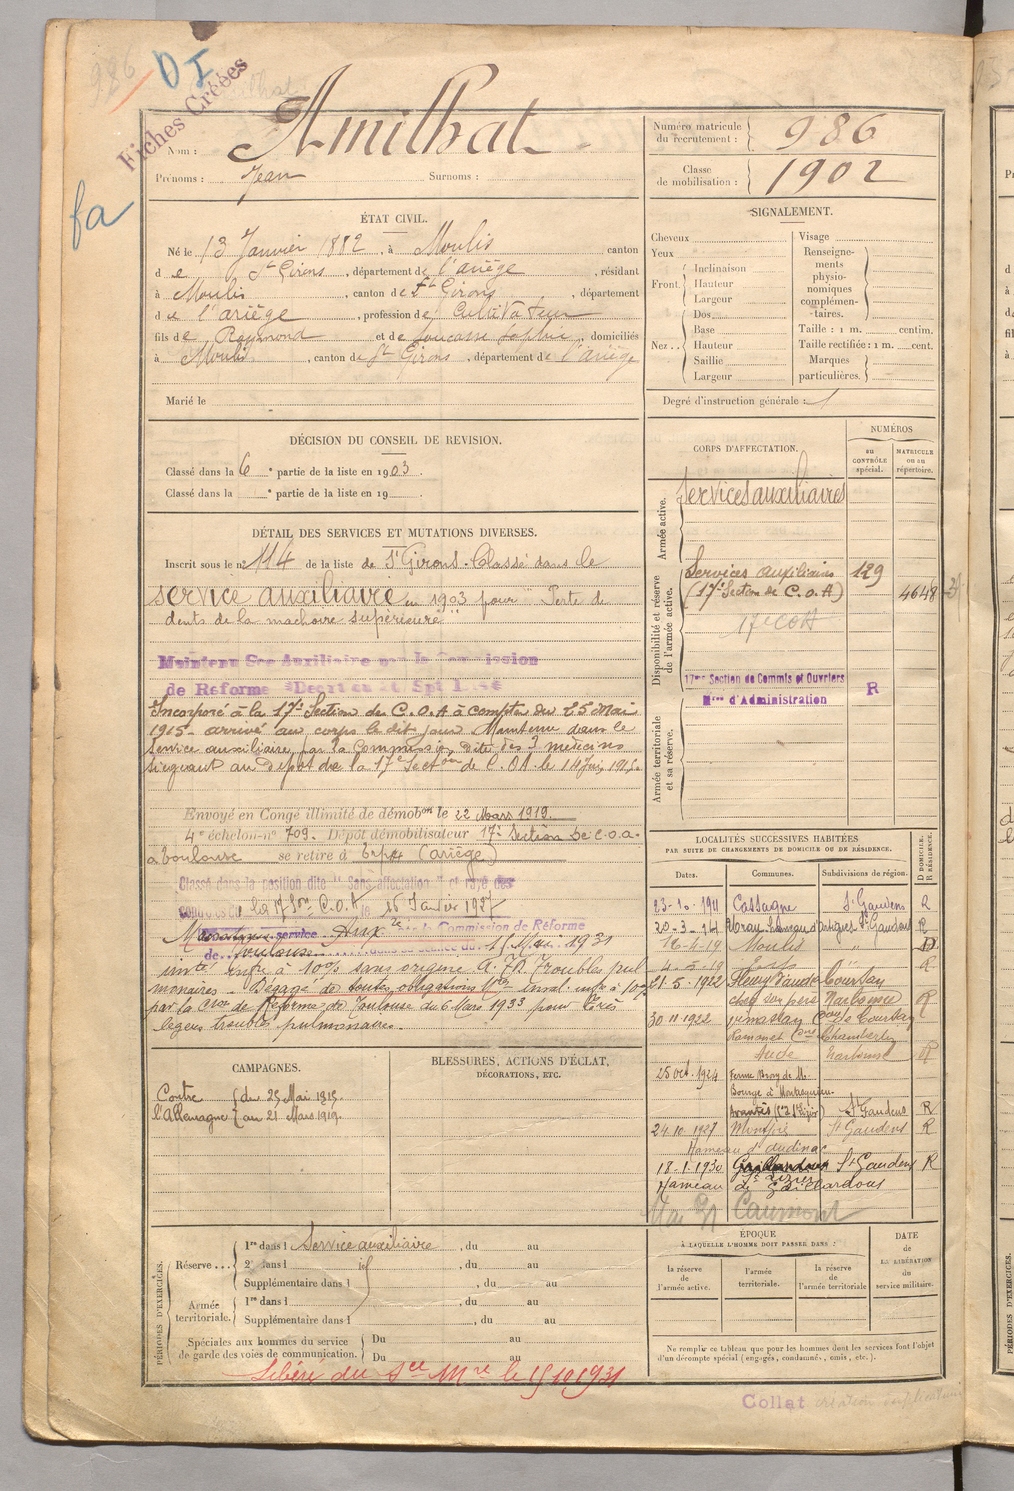 986 D I
Fiches Créées
fa
Nom : Amilhat
Prénoms : Jean Surnoms :
Numéro matricule du recrutement : 986
Classe de mobilisation : 1902
ÉTAT CIVIL.
Né le 13 Janvier 1882, à Moulis, canton
de St Girons, département de l'ariège, résidant
à Moulis, canton de St Girons, département
de l'ariège, profession de Cultivateur
fils de Raymond et de Sophie, domiciliés
à Moulis, canton de St Girons, département de l'ariège
Marié le
SIGNALEMENT.
Cheveux
Yeux
Front. Inclinaison
Hauteur
Largeur
Nez.. Dos
Base
Hauteur
Saillie
Largeur
Visage
Renseigne-
ments
physio-
nomiques
complémen-
taires.
Taille : 1 m. centim.
Taille rectifiée : 1 m. cent.
Marques
particulières.
Degré d'instruction générale : 1
DÉCISION DU CONSEIL DE REVISION.
Classé dans la 6e partie de la liste en 1903.
Classé dans la e partie de la liste en 19
DÉTAIL DES SERVICES ET MUTATIONS DIVERSES.
Inscrit sous le n° 114 de la liste de St Girons. Classé dans le
service auxiliaire en 1903 pour "Perte de
dents de la machoire supérieure"
Maintenu Sce Auxiliaire par la Commission
de Reforme Décret du Spt
Incorporé à la 17e Section de C.O.A à compter du 25 Mai
1915 arrivé au corps le dit jour Maintenu dans le
Service auxiliaire par la Commission dite des 3 médecins
siègeant au Dépôt de la 17e Section de C.O.A. le 14
Envoyé en Congé illimité de démobon le 22 Mars 1919.
4e échelon n° 709. Dépôt démobilisateur 17e Section de C.O.A.
a Toulouse se retire à Erp (ariège)
Classé dans la position dite "Sans affectation" et rayé des
contrôles de la 17 Son C.O.A le 16 Janvier 1927
service Auxre Commission de Réforme
de Toulouse dans sa séance du 1931
à 10% sans origine Troubles pul
monaires. Dégagé de toutes obligations à 10%
par la Cion de Réforme de Toulouse du 6 Mars 1933 pour très
légers troubles pulmonaires.
CORPS D'AFFECTATION.
NUMÉROS
au CONTRÔLE spécial.
MATRICULE ou au répertoire.
Armée active.
Services auxiliaires
Disponibilité et réserve de l'armée active.
Services auxiliaires 129
(17e Section de C.O.A) 4648
17e COA
17me Section de Commis et Ouvriers
Mres d'Administration R
Armée territoriale et sa réserve.
LOCALITÉS SUCCESSIVES HABITÉES
PAR SUITE DE CHANGEMENTS DE DOMICILE OU DE RÉSIDENCE.
Dates. Communes. Subdivisions de région. D DOMICILE. R RÉSIDENCE.
23-10-1911 Cassagne St Gaudens R
20-3-14 St Gaudens R
16-4-19 Moulis " D
4-5-19 Erp " R
21-5-1922 Fleury d'aude Coursan
chez son père Narbonne R
30 11 1922 Con de Coursan
Aude Narbonne R
25 oct. 1924 Ferme de M.
Bourge à Montesquieu-
Avantès (Con St Lizier) St Gaudens R
24.10.1927 St Gaudens R
Hameau d'audinac
18-1-1930 St Gaudens R
Hameau de Gaillardous
Caumont
CAMPAGNES.
Contre l'Allemagne du 25 Mai 1915.
au 21 Mars 1919.
BLESSURES, ACTIONS D'ÉCLAT,
DÉCORATIONS, ETC.
PÉRIODES D'EXERCICES.
Réserve... 1re dans l Service auxiliaire, du au
2e dans l id, du au
Supplémentaire dans l, du au
Armée territoriale. 1re dans l, du au
Supplémentaire dans l, du au
Spéciales aux hommes du service Du au
de garde des voies de communication. Du au
Libéré du Sce Mre le 15 10 1931
ÉPOQUE
À LAQUELLE L'HOMME DOIT PASSER DANS :
la réserve de l'armée active.
l'armée territoriale.
la réserve de l'armée territoriale
DATE de LA LIBÉRATION du service militaire.
Ne remplir ce tableau que pour les hommes dont les services font l'objet
d'un décompte spécial (engagés, condamné, omis, etc.).
Collat